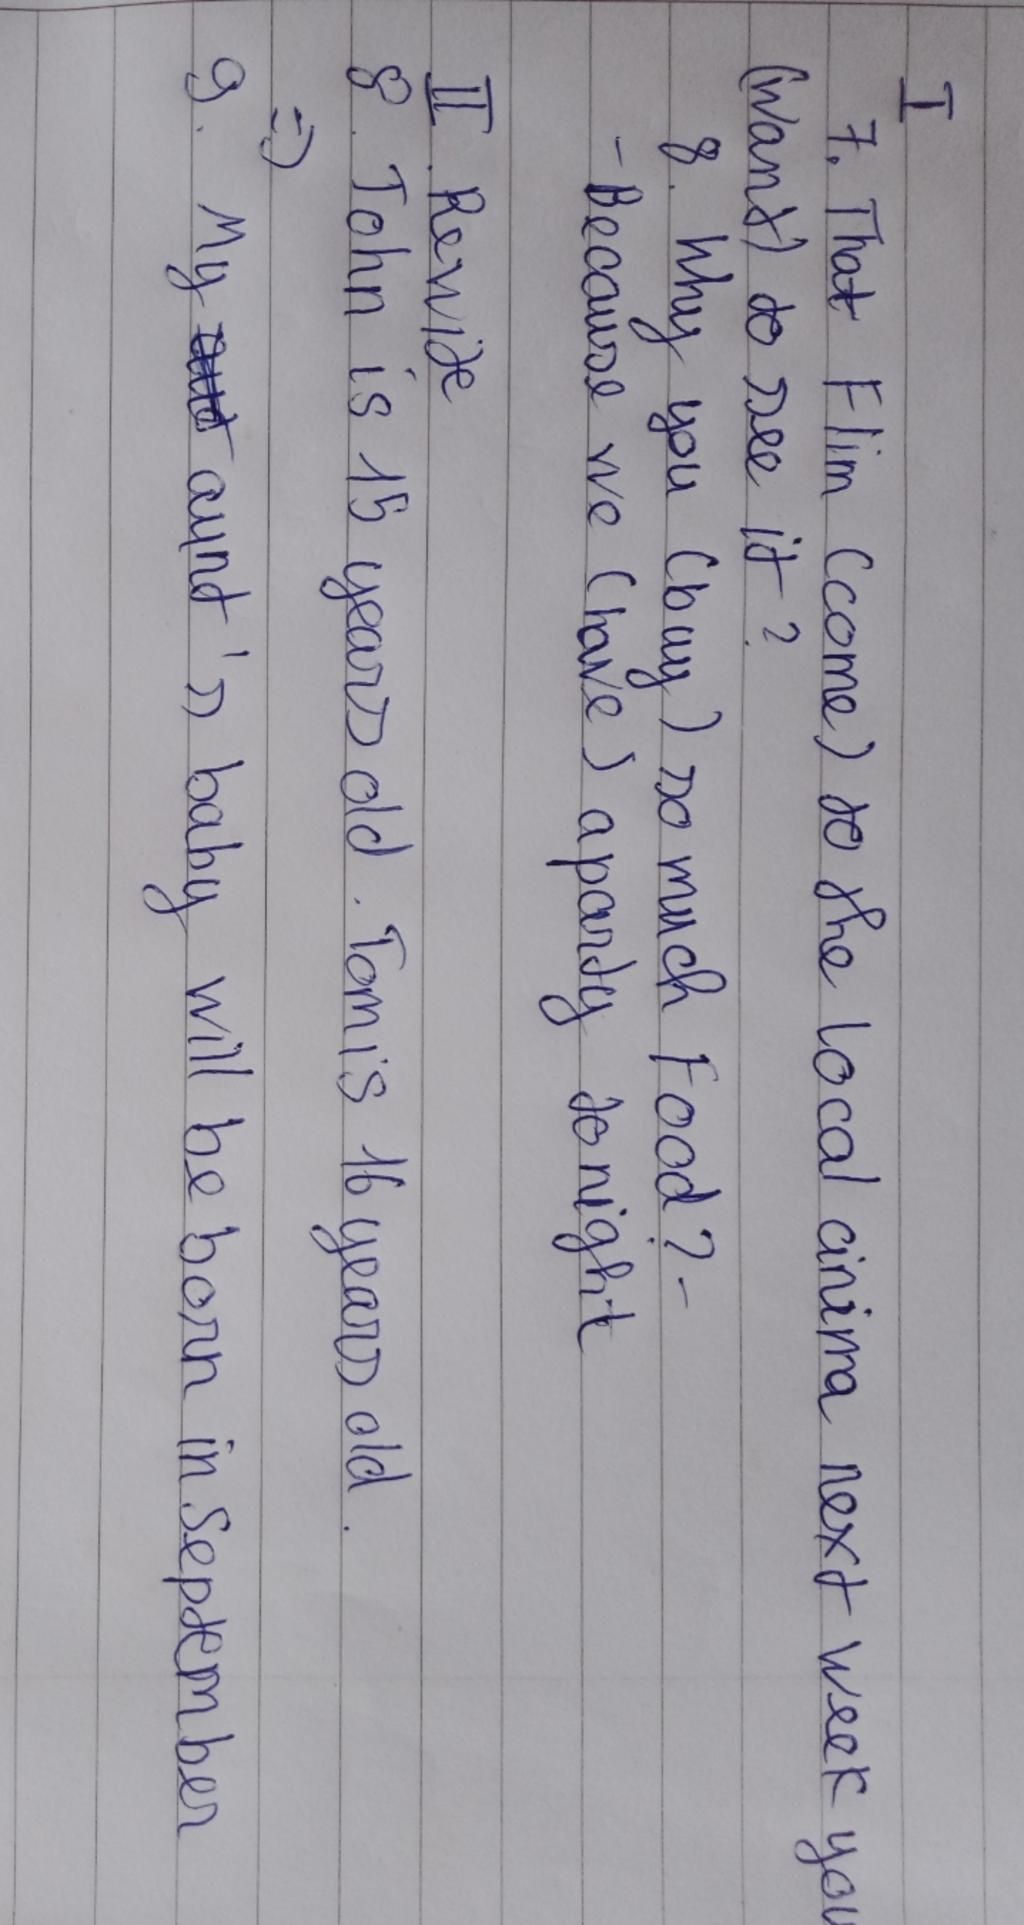 I
7. That Flim (come) to the local cinima next week you
(want) to see it?
8. Why you (buy) so much Food? -
- Because we (have) a party tonight
II. Rewite
8. John is 15 years old. Tom is 16 years old.
=)
9. My aunt's baby will be born in September